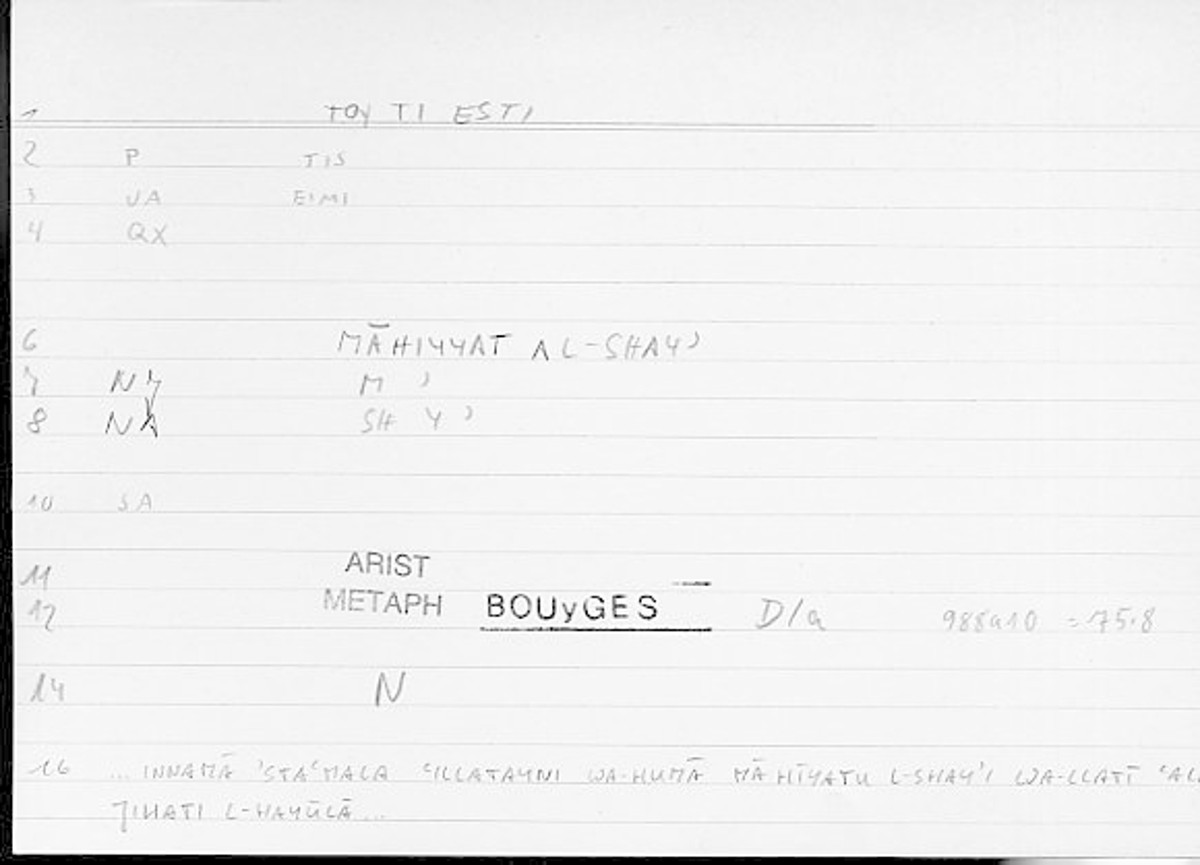 1 TOY TI ESTI
2 P TIS
3 VA EIMI
4 QX
6 MĀHIYYAT AL-SHAYʾ
7 NY M ʾ
8 SH Y ʾ
10 SA
11 ARIST
12 METAPH BOUyGES D/a 988a10 = 75.8
14 N
16 ... INNAMĀ ʾSTAʿMALA ʿILLATAYNI WA-HUMĀ MĀHĪYATU L-SHAYʾI WA-LLATĪ
JIHATI L-HAYŪLĀ...